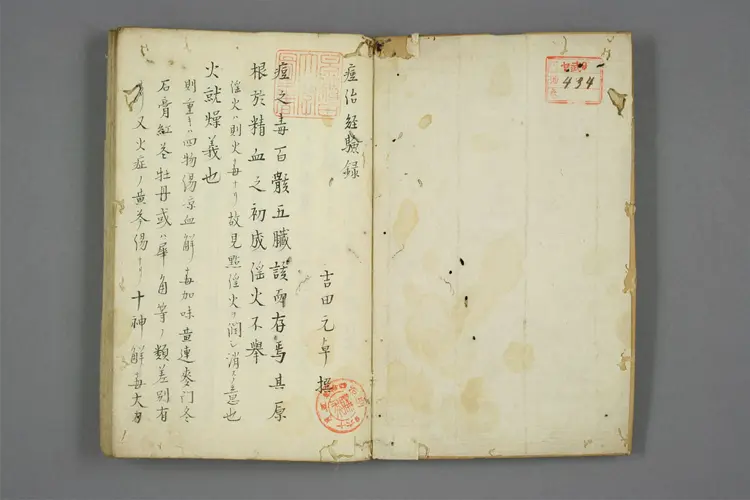 434
痘治経驗録
吉田元卓 撰
痘之毒百骸五臓該而存焉其原
根於精血之初成淫火不擧
淫火ハ則火毒ナリ故見點淫火ヲ潤シ消スノ意也
火就燥義也
則重キハ四物湯凉血解毒加味黄連麥门冬
石膏紅花牡丹或ハ犀角等ノ類差別有
又火症ノ黄芩湯ナリ十神解毒大